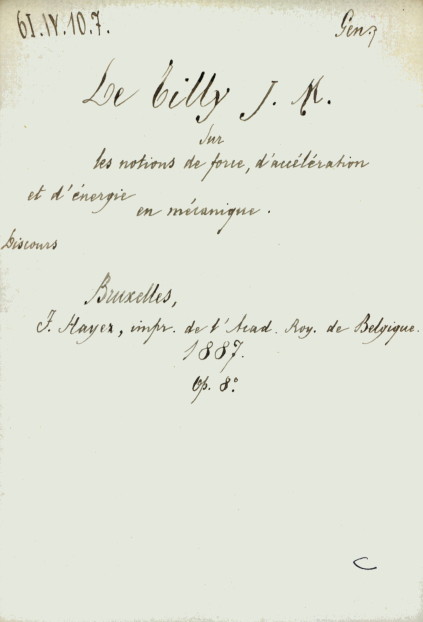 61.IV.10.7.
Gen.
De Tilly J. M.
Sur
les notions de force, d'accélération
et d'énergie
en mécanique.
Discours
Bruxelles,
F. Hayez, impr. de l'Acad. Roy. de Belgique.
1887.
Op. 8°
C